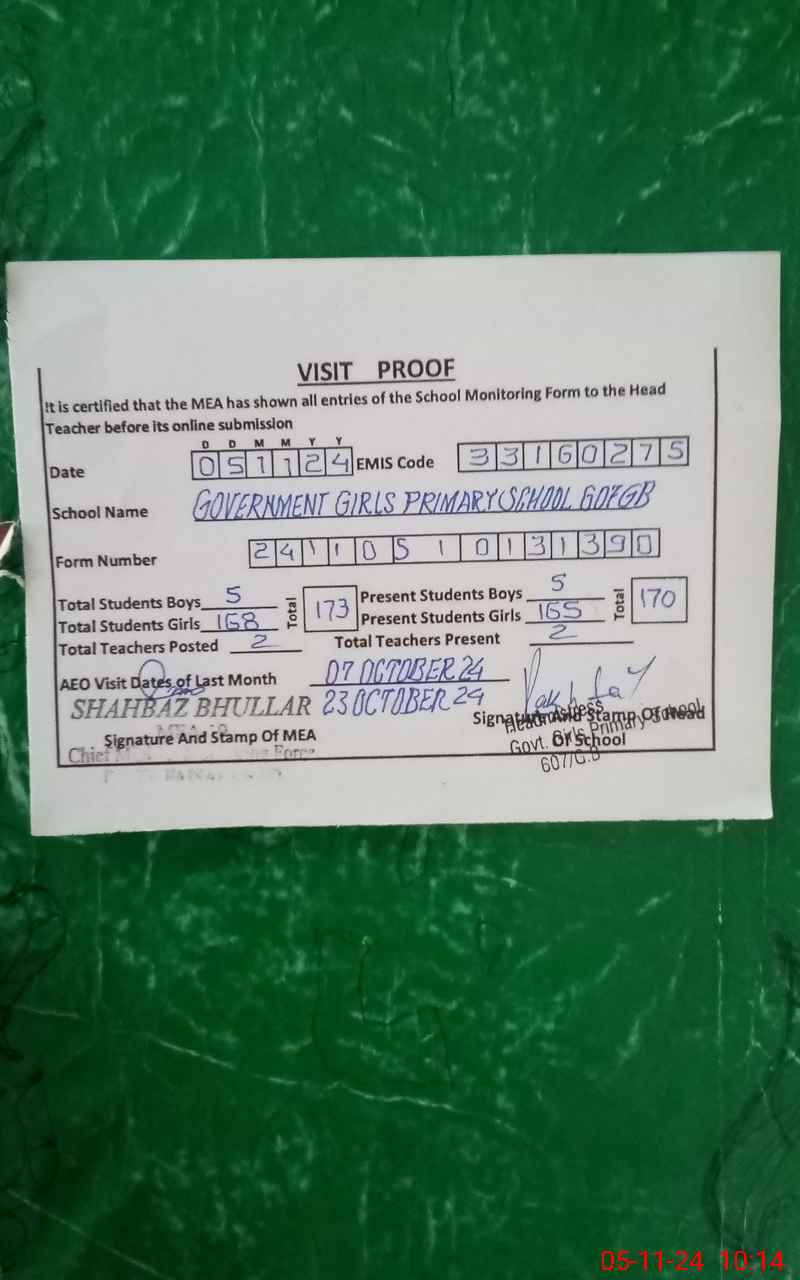 VISIT PROOF
It is certified that the MEA has shown all entries of the School Monitoring Form to the Head
Teacher before its online submission
D D M M Y Y
Date 0 5 1 1 2 4 EMIS Code 3 3 1 6 0 2 7 5
School Name GOVERNMENT GIRLS PRIMARY SCHOOL 607GB
Form Number 2 4 1 1 0 5 1 0 1 3 1 3 9 0
Total Students Boys 5 Total 173 Present Students Boys 5 Total 170
Total Students Girls 168 Present Students Girls 165
Total Teachers Posted 2 Total Teachers Present 2
AEO Visit Dates of Last Month 07 OCTOBER 24
SHAHBAZ BHULLAR 23 OCTOBER 24
Signature And Stamp Of MEA Signature And Stamp Of Head
Of School
Chief
Headmistress
Govt. Girls Primary School
607/G.B
05-11-24 10:14